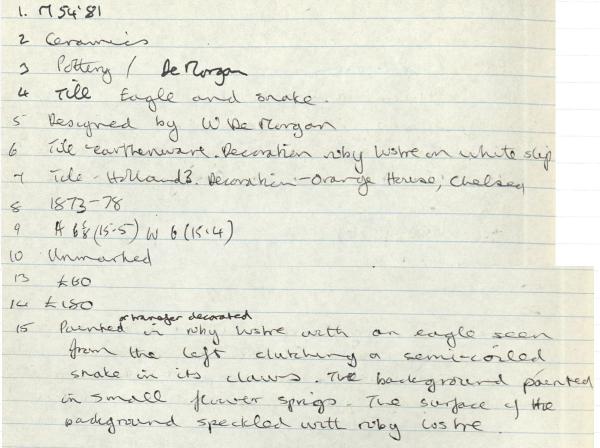 1. M 54'81
2 Ceramics
3 Pottery / De Morgan
4 Tile Eagle and snake.
5 Designed by W De Morgan
6 Tile - earthenware. Decoration ruby lustre on white slip
7 Tile - Holland?. Decoration - Orange House, Chelsea
8 1873-78
9 H 6⅛ (15.5) W 6 (15.4)
10 Unmarked
13 £60
14 £180
or transfer decorated
15 Painted in ruby lustre with an eagle seen
from the left clutching a semi-coiled
snake in its claws. The background painted
in small flower sprigs. The surface of the
background speckled with ruby lustre.